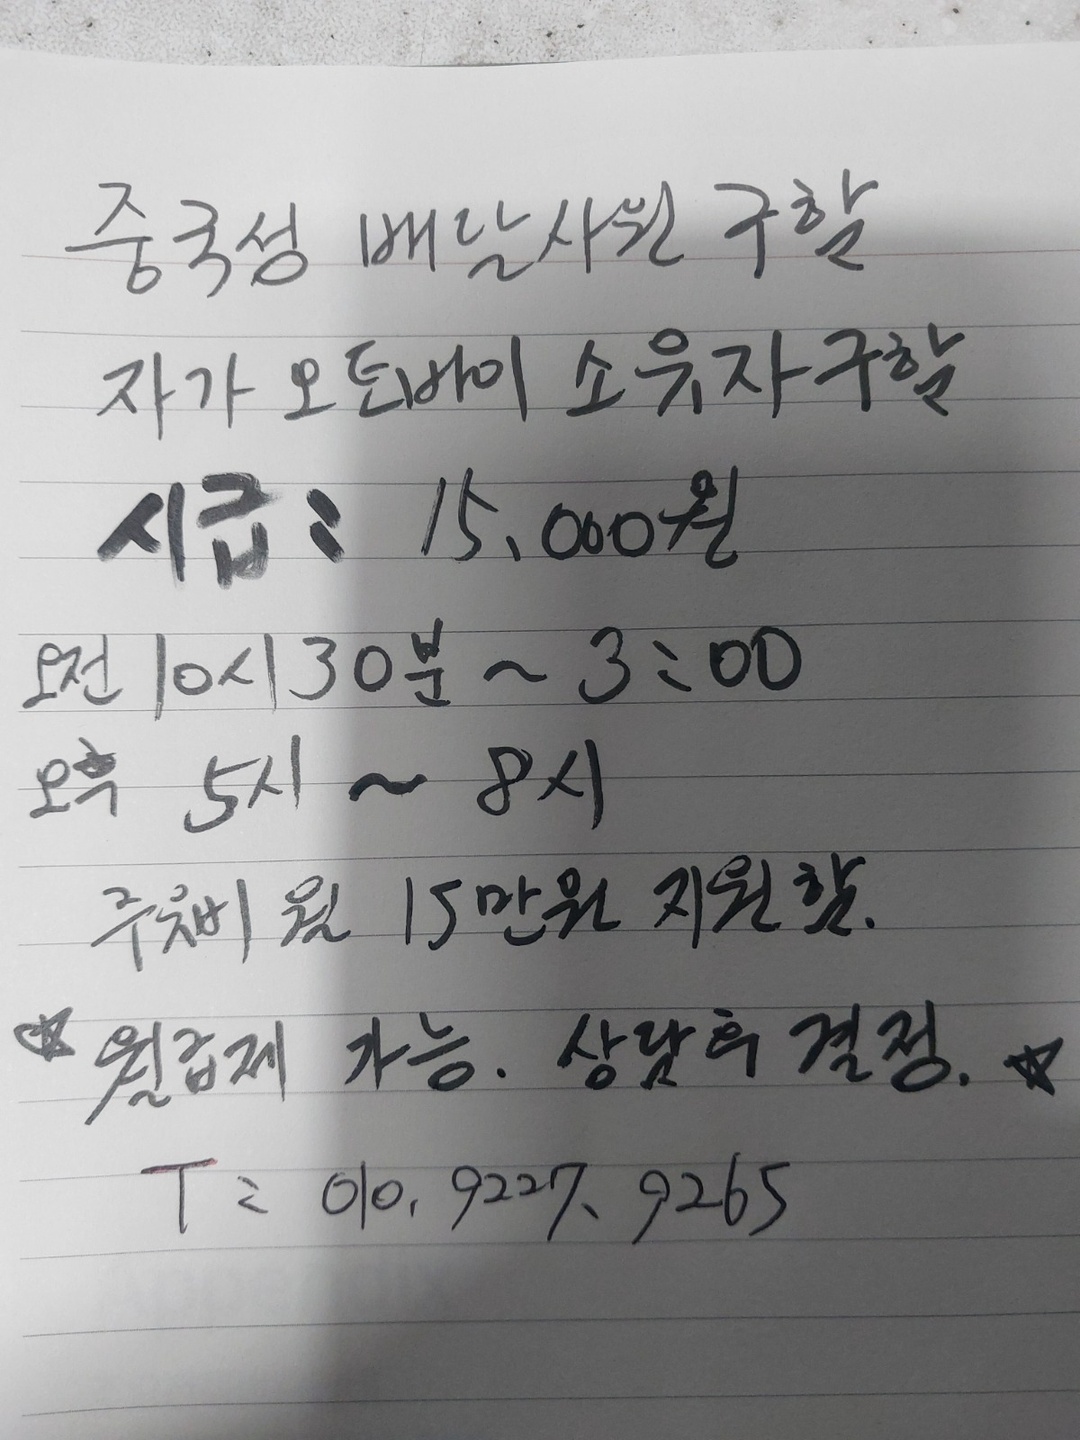 중국성 배달사원 구함
자가 오토바이 소유자 구함
시급: 15,000원
오전 10시 30분 ~ 3:00
오후 5시 ~ 8시
주유비 월 15만원 지원함.
☆ 월급제 가능. 상담후 결정. ☆
T: 010. 9227. 9265